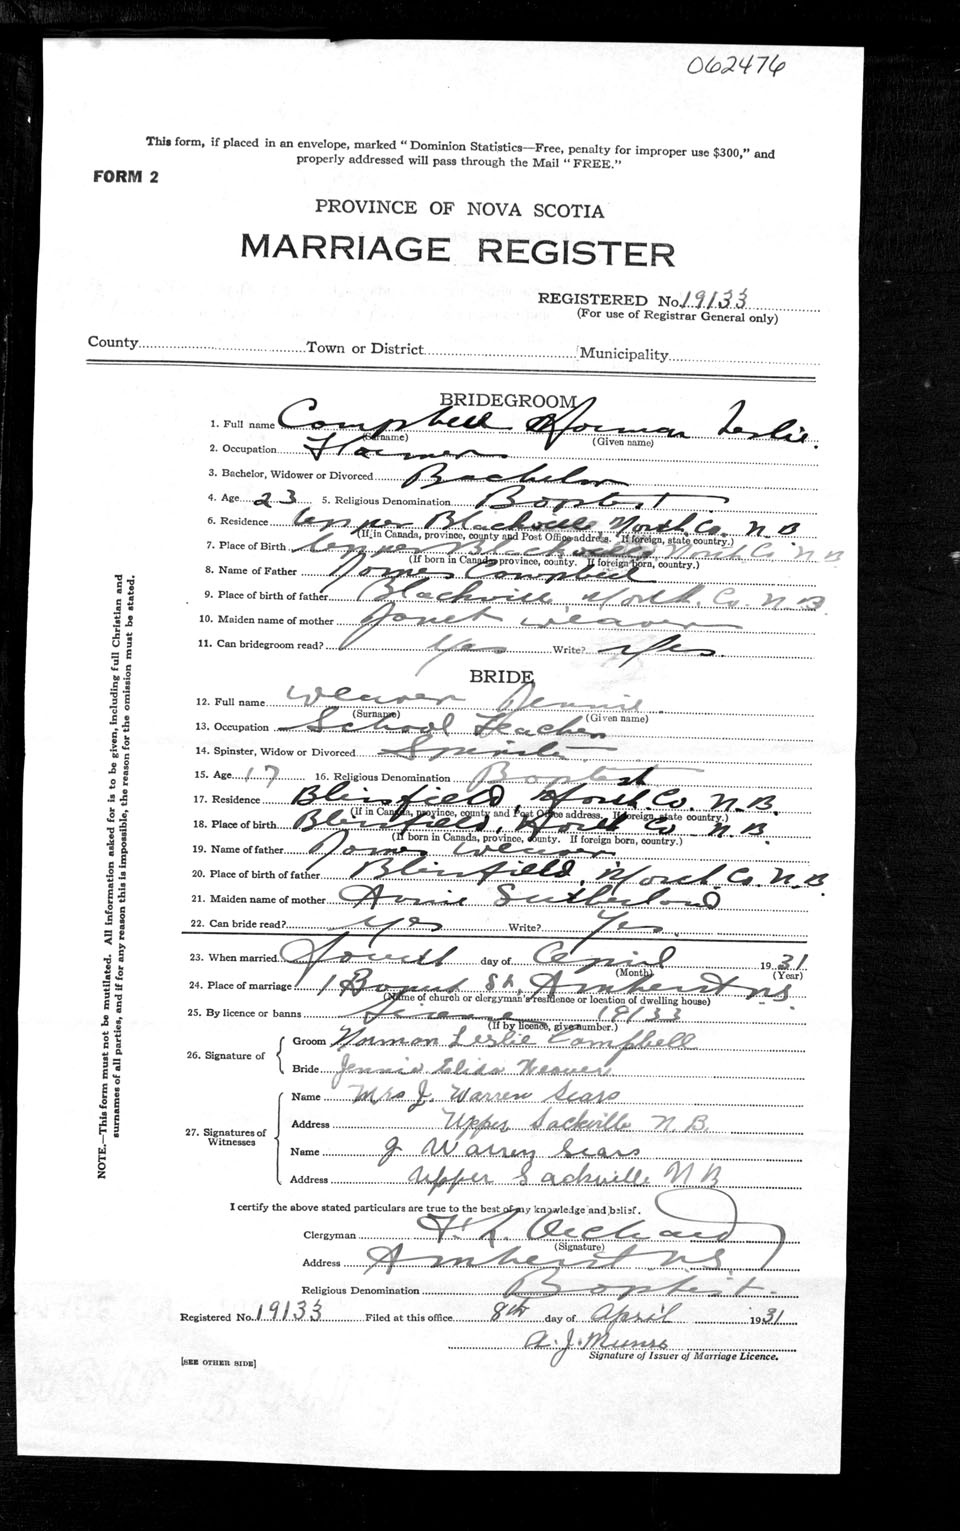 062476
This form, if placed in an envelope, marked "Dominion Statistics—Free, penalty for improper use $300," and
properly addressed will pass through the Mail "FREE."
FORM 2
PROVINCE OF NOVA SCOTIA
MARRIAGE REGISTER
REGISTERED No. 19133
(For use of Registrar General only)
County Town or District Municipality
BRIDEGROOM
1. Full name Campbell Norman Leslie.
(Surname) (Given name)
2. Occupation Farmer
3. Bachelor, Widower or Divorced Bachelor
4. Age 23 5. Religious Denomination Baptist
6. Residence Upper Blackville North. Co. N. B
(If in Canada, province, county and Post Office address. If foreign, state country.)
7. Place of Birth Upper Blackville North Co N B
(If born in Canada, province, county. If foreign born, country.)
8. Name of Father James Campbell
9. Place of birth of father Blackville North. Co. N. B.
10. Maiden name of mother Janet Weaver
11. Can bridegroom read? Yes Write? Yes.
BRIDE
12. Full name Weaver Jennie
(Surname) (Given name)
13. Occupation School Teacher
14. Spinster, Widow or Divorced Spinster
15. Age 17 16. Religious Denomination Baptist
17. Residence Blissfield, North. Co. N. B.
(If in Canada, province, county and Post Office address. If foreign, state country.)
18. Place of birth Blissfield, North Co N. B.
(If born in Canada, province, county. If foreign born, country.)
19. Name of father James Weaver
20. Place of birth of father Blissfield, North. Co. N. B.
21. Maiden name of mother Annie Sutherland
22. Can bride read? Yes Write? Yes.
23. When married Fourth day of April 1931
(Month) (Year)
24. Place of marriage 1 St. Amherst N.S.
(Name of church or clergyman's residence or location of dwelling house)
25. By licence or banns License 19133
(If by licence, give number.)
26. Signature of
Groom Norman Leslie Campbell
Bride Jennie Elida Weaver
27. Signatures of Witnesses
Name Mrs J. Warren Sears
Address Upper Sackville N. B.
Name J Warren Sears
Address Upper Sackville N B
I certify the above stated particulars are true to the best of my knowledge and belief.
Clergyman Orchard
(Signature)
Address Amherst N.S.
Religious Denomination Baptist.
Registered No. 19133 Filed at this office 8th day of April 1931
A. J. Munro
Signature of Issuer of Marriage Licence.
[SEE OTHER SIDE]
NOTE.—This form must not be mutilated. All information asked for is to be given, including full Christian and
surnames of all parties, and if for any reason this is impossible, the reason for the omission must be stated.